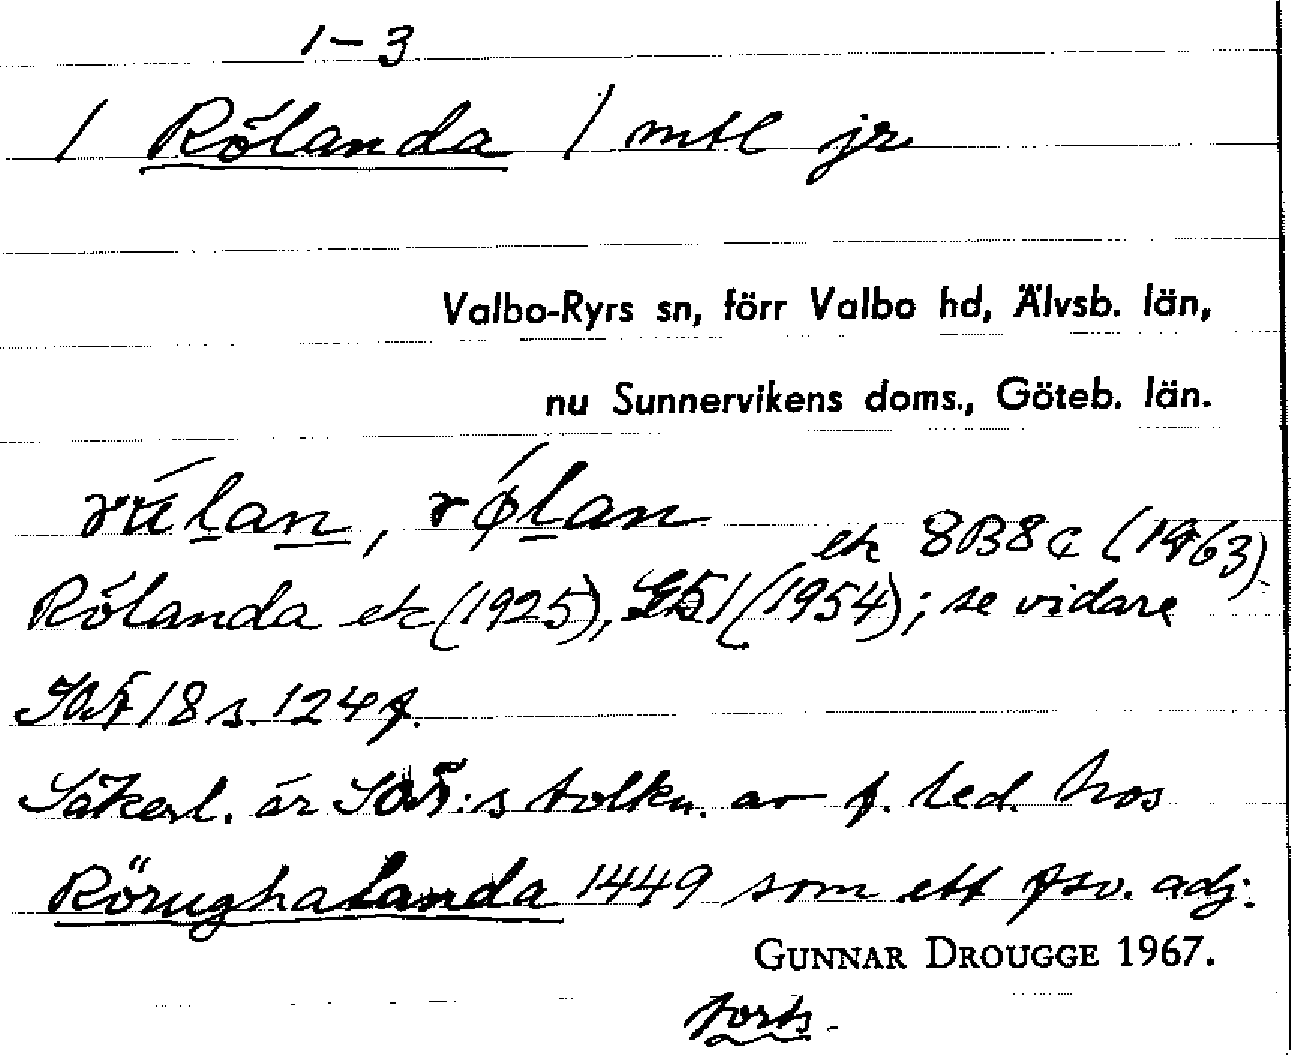 1–3
/ Rölanda / mtl jr
Valbo-Ryrs sn, förr Valbo hd, Älvsb. län,
nu Sunnervikens doms., Göteb. län.
rålan, rǿlan
ek 8B8c (1963)
Rölanda ek (1925), Gk 51 (1954); se vidare
SOÄ 18 s. 124 f.
Säkerl. är SOÄ:s tolkn. av f. led. hos
Rörughalanda 1449 som ett fsv. adj.
GUNNAR DROUGGE 1967.
forts.